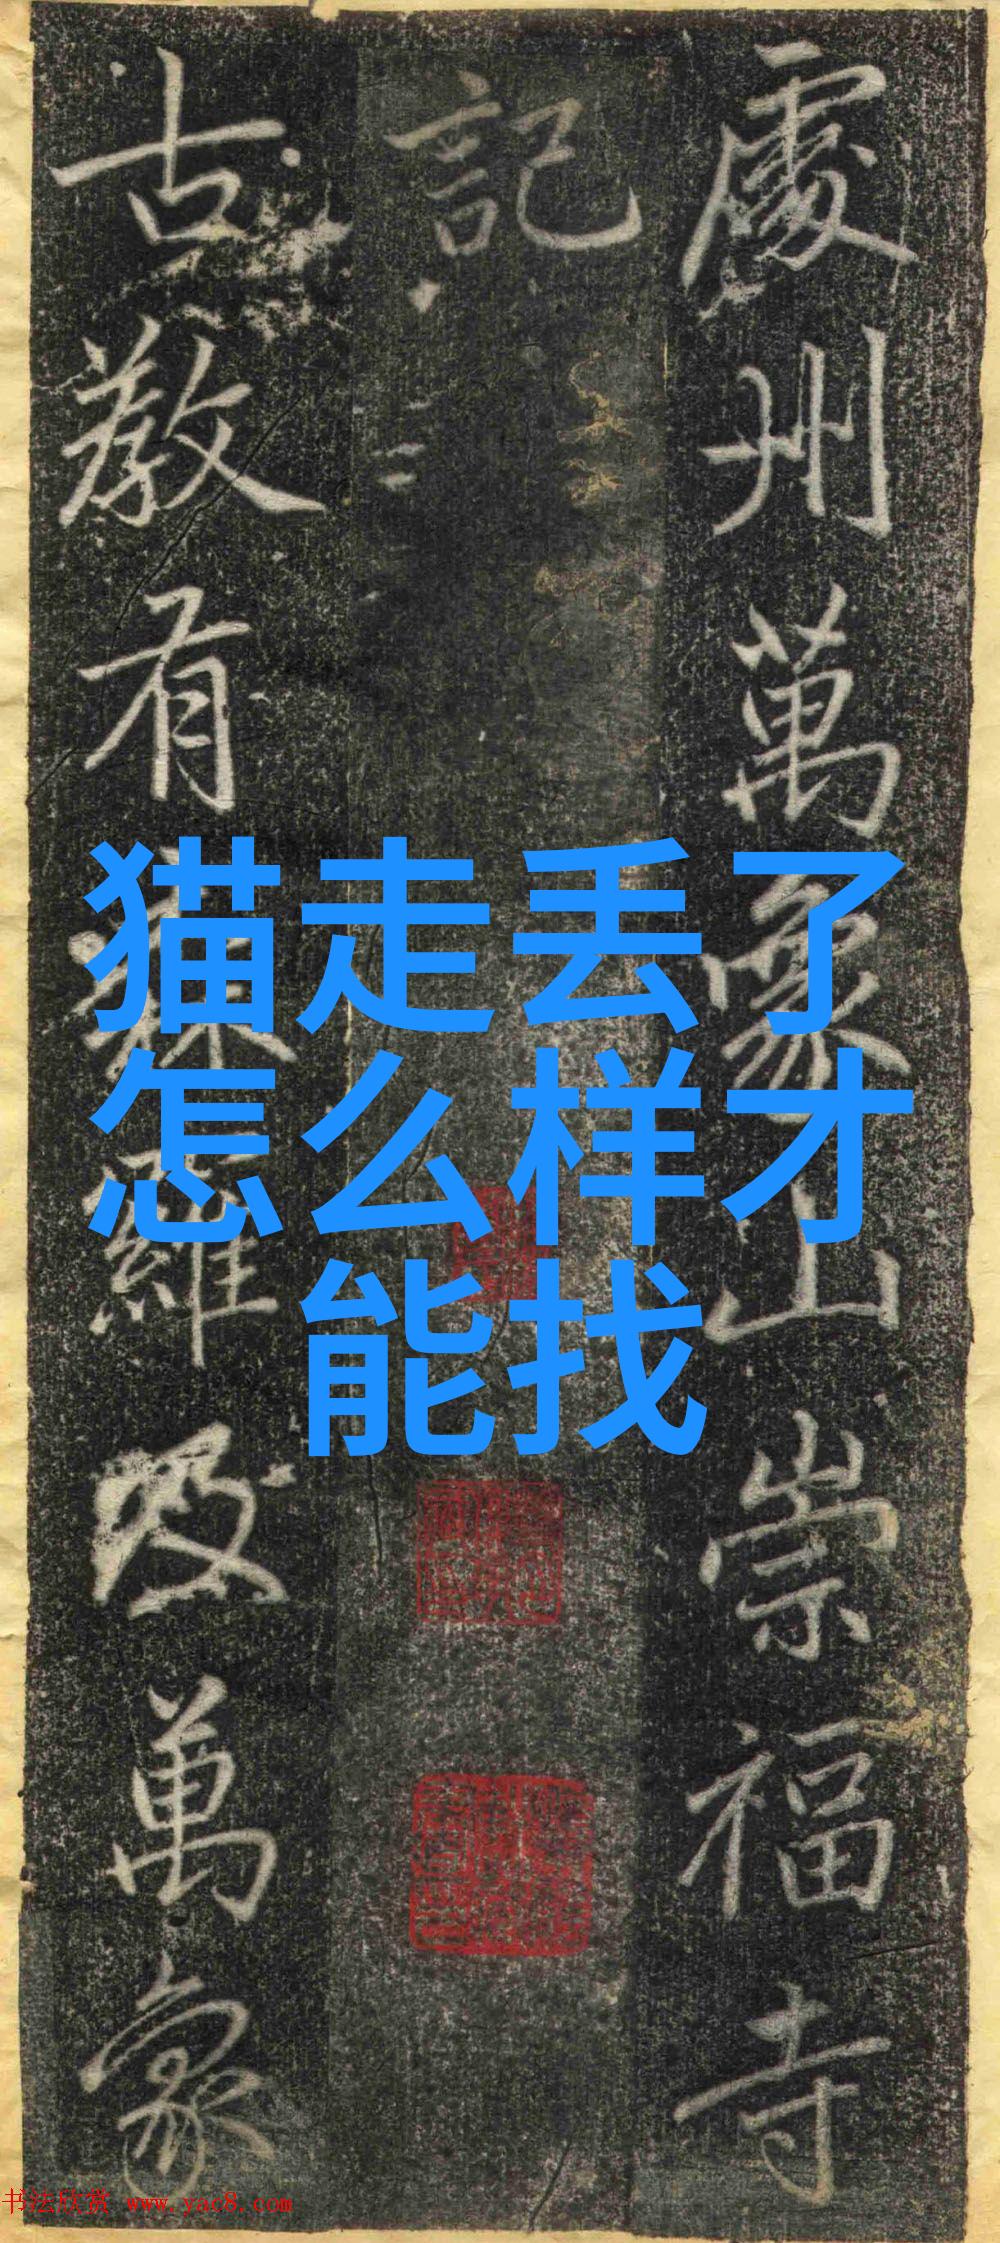 處州萬象山崇福寺
記
古教有森羅及萬象
猫走丢了
怎么样才
能找
书法欣赏 www.yac8.com